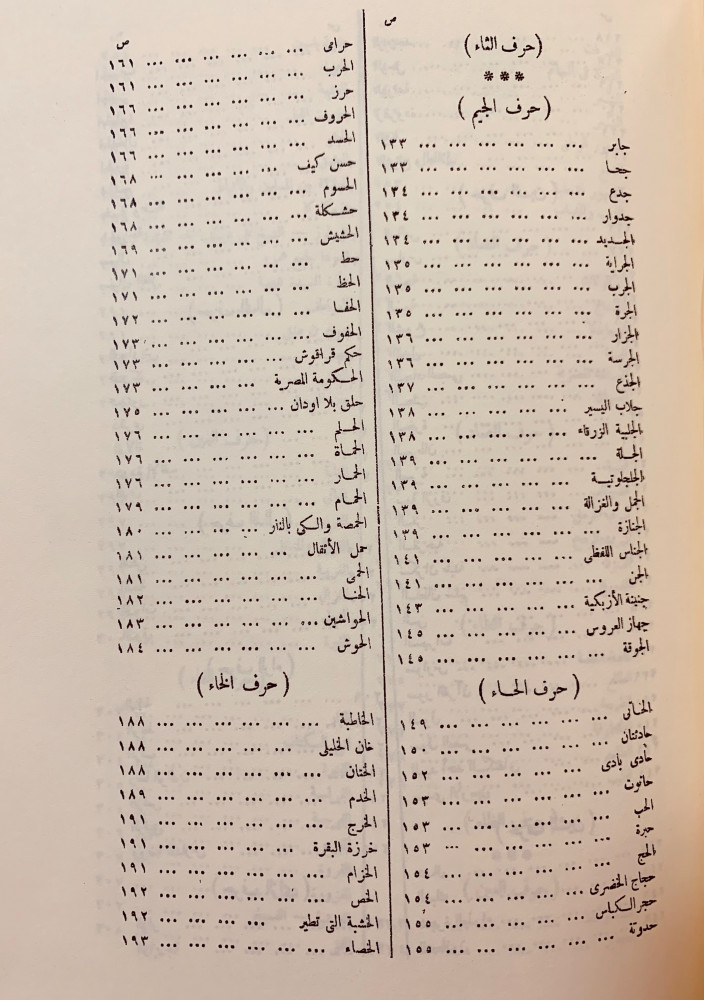 ص
(حرف الثاء)
***
(حرف الجيم)
جابر ... ... ... ... ... ... ١٣٣
جحا ... ... ... ... ... ... ١٣٣
جدع ... ... ... ... ... ... ١٣٤
جدوار ... ... ... ... ... ... ١٣٤
الجديد ... ... ... ... ... ... ١٣٤
الجراية ... ... ... ... ... ... ١٣٥
الجرب ... ... ... ... ... ... ١٣٥
الجرة ... ... ... ... ... ... ١٣٥
الجزار ... ... ... ... ... ... ١٣٦
الجرسة ... ... ... ... ... ... ١٣٦
الجذع ... ... ... ... ... ... ١٣٧
جلاب اليسير ... ... ... ... ... ١٣٨
الجلبية الزرقاء ... ... ... ... ... ١٣٨
الجلة ... ... ... ... ... ... ١٣٩
الجلجلوتيــة ... ... ... ... ... ١٣٩
الجمل والغزالة ... ... ... ... ... ١٣٩
الجنازة ... ... ... ... ... ... ١٣٩
الجناس اللفظى ... ... ... ... ... ١٤١
الجن ... ... ... ... ... ... ١٤١
جنينة الأزبكية ... ... ... ... ... ١٤٣
جهاز العروس ... ... ... ... ... ١٤٥
الجوقة ... ... ... ... ... ... ١٤٥
(حرف الحــاء)
الحــاتى ... ... ... ... ... ... ١٤٩
حادثتان ... ... ... ... ... ... ١٥٠
حادى بادى ... ... ... ... ... ١٥٢
حانوت ... ... ... ... ... ... ١٥٣
الحب ... ... ... ... ... ... ١٥٣
حبرة ... ... ... ... ... ... ١٥٣
الحج ... ... ... ... ... ... ١٥٤
حجاج الخضرى ... ... ... ... ... ١٥٤
حجر الكباس ... ... ... ... ... ١٥٥
حدوتة ... ... ... ... ... ... ١٥٥
ص
حرامى ... ... ... ... ... ... ١٦١
الحرب ... ... ... ... ... ... ١٦١
حرز ... ... ... ... ... ... ١٦٦
الحروف ... ... ... ... ... ... ١٦٦
الحسد ... ... ... ... ... ... ١٦٦
حسن كيف ... ... ... ... ... ١٦٨
الحسوم ... ... ... ... ... ... ١٦٨
حشكلة ... ... ... ... ... ... ١٦٨
الحشيش ... ... ... ... ... ... ١٦٩
حط ... ... ... ... ... ... ١٧١
الحظ ... ... ... ... ... ... ١٧١
الحفــا ... ... ... ... ... ... ١٧٢
الحفوف ... ... ... ... ... ... ١٧٣
حكم قراقوش ... ... ... ... ... ١٧٣
الحكومة المصرية ... ... ... ... ... ١٧٣
حلق بلا اودان ... ... ... ... ... ١٧٥
الحــلم ... ... ... ... ... ... ١٧٦
الحماة ... ... ... ... ... ... ١٧٦
الحمار ... ... ... ... ... ... ١٧٦
الحمام ... ... ... ... ... ... ١٧٩
الحمصة والكى بالنار ... ... ... ... ١٨٠
حمل الأثقال ... ... ... ... ... ١٨١
الحمى ... ... ... ... ... ... ١٨١
الحنــا ... ... ... ... ... ... ١٨٢
الحواشين ... ... ... ... ... ... ١٨٣
الحوش ... ... ... ... ... ... ١٨٤
(حرف الخاء)
الخاطبة ... ... ... ... ... ... ١٨٨
خان الخليلى ... ... ... ... ... ١٨٨
الختان ... ... ... ... ... ... ١٨٨
الخدم ... ... ... ... ... ... ١٨٩
الخرج ... ... ... ... ... ... ١٩١
خرزة البقرة ... ... ... ... ... ١٩١
الخزام ... ... ... ... ... ... ١٩١
الخص ... ... ... ... ... ... ١٩٢
الخشبة التى تطير ... ... ... ... ١٩٢
الخصاء ... ... ... ... ... ... ١٩٣